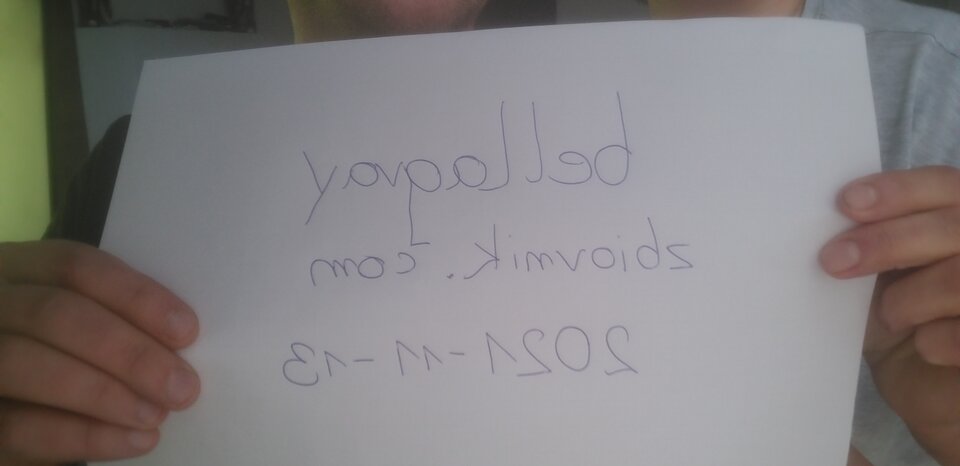 bellagray
zbiornik.com
2021-11-13